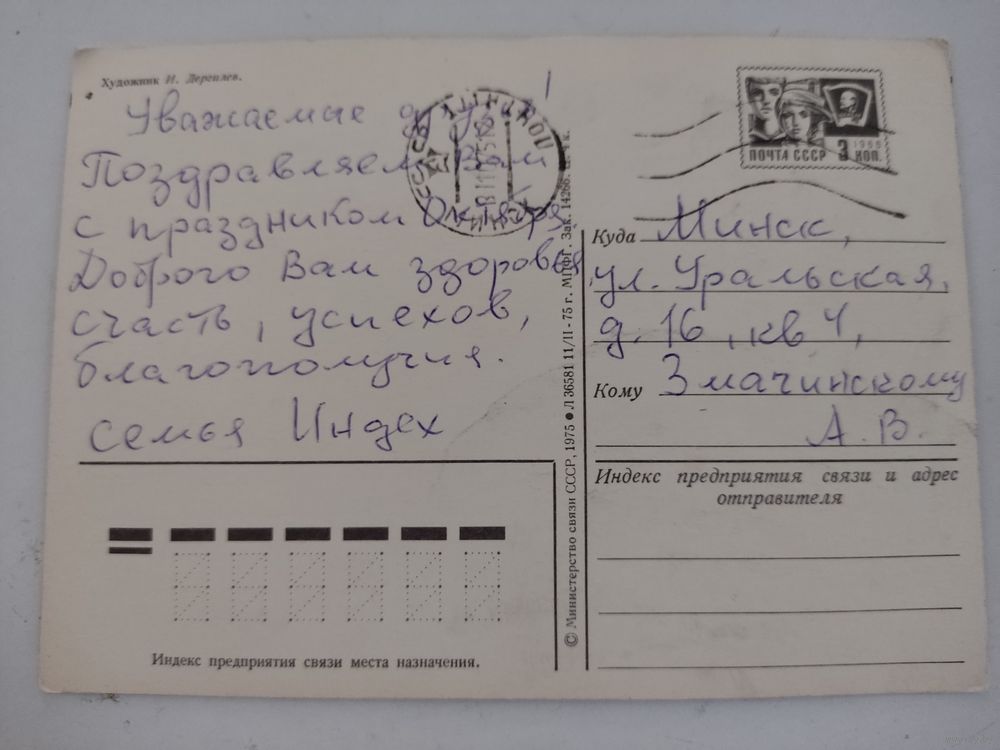 Художник И. Дергилев.
Уважаемые друзья!
Поздравляем Вам
с праздником Октября.
Доброго Вам здоровья
счасть, успехов,
благополучия.
семья Индех
ПОЧТА СССР 3 КОП.
1966
Куда Минск,
ул. Уральская,
д. 16, кв 4,
Кому Змачинскому
А. В.
Индекс предприятия связи и адрес
отправителя
Индекс предприятия связи места назначения.
© Министерство связи СССР, 1975 ● Л 36581 11/II-75 г. МПФГ. Зак.